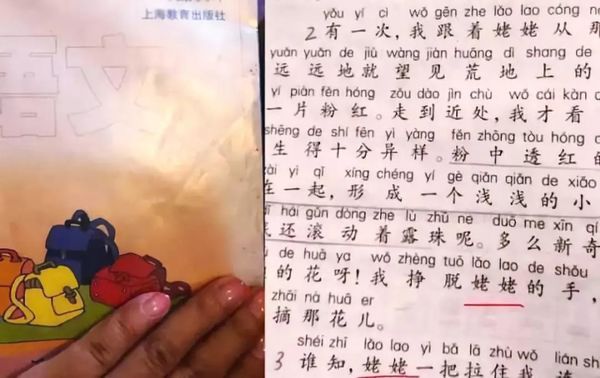 上海教育出版社
语文
yǒu yí cì wǒ gēn zhe lǎo lao cóng
2 有一次,我跟着姥姥从那
yuǎn yuǎn de jiù wàng jiàn huāng dì shang de
远远地就望见荒地上的
yí piàn fěn hóng zǒu dào jìn chù wǒ cái kàn
一片粉红。走到近处,我才看
shēng de shí fēn yì yàng fěn zhōng tòu hóng
生得十分异样。粉中透红的
zài yì qǐ xíng chéng yí gè qiǎn qiǎn de xiǎo
在一起,形成一个浅浅的小
hái gǔn dòng zhe lù zhū ne duō me xīn qí
还滚动着露珠呢。多么新奇
de huā ya wǒ zhèng tuō lǎo lao de shǒu
的花呀!我挣脱姥姥的手,
zhāi nà huā er
摘那花儿。
shéi zhī lǎo lao yì bǎ lā zhù wǒ lián
3 谁知,姥姥一把拉住我